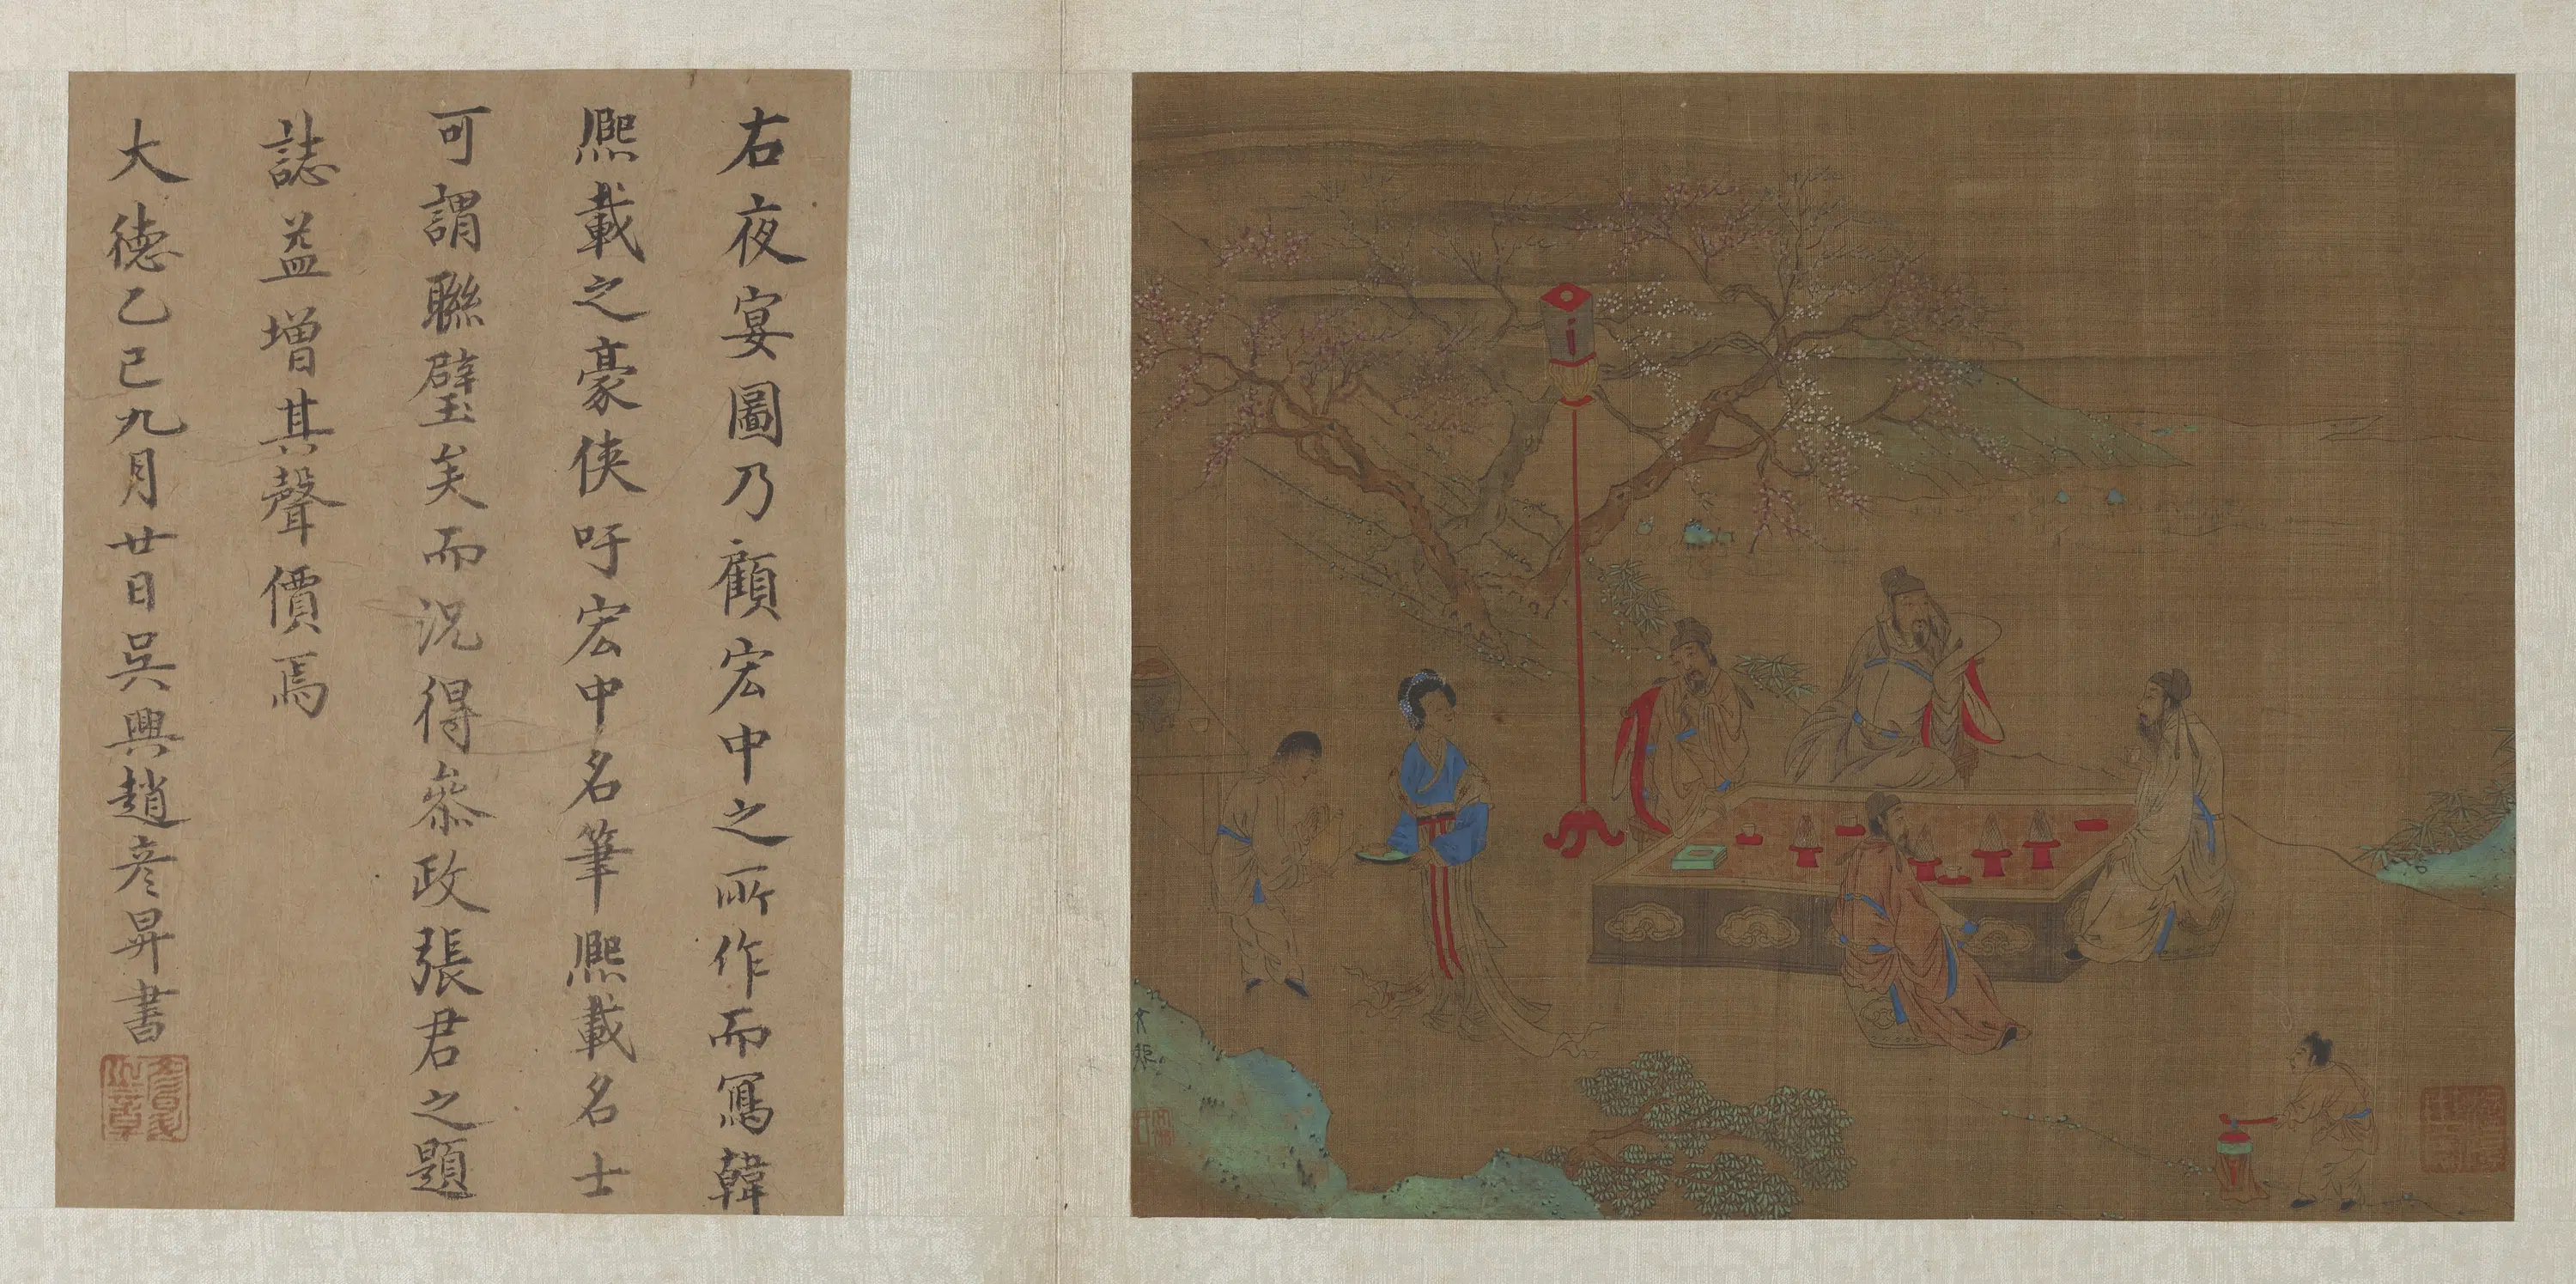 右夜宴圖乃顧宏中之所作而寫韓
熙載之豪俠吁宏中名筆熙載名士
可謂聯璧矣而況得叅政張君之題
誌益增其聲價焉
大德乙巳九月廿日吳興趙彥昇書
文矩